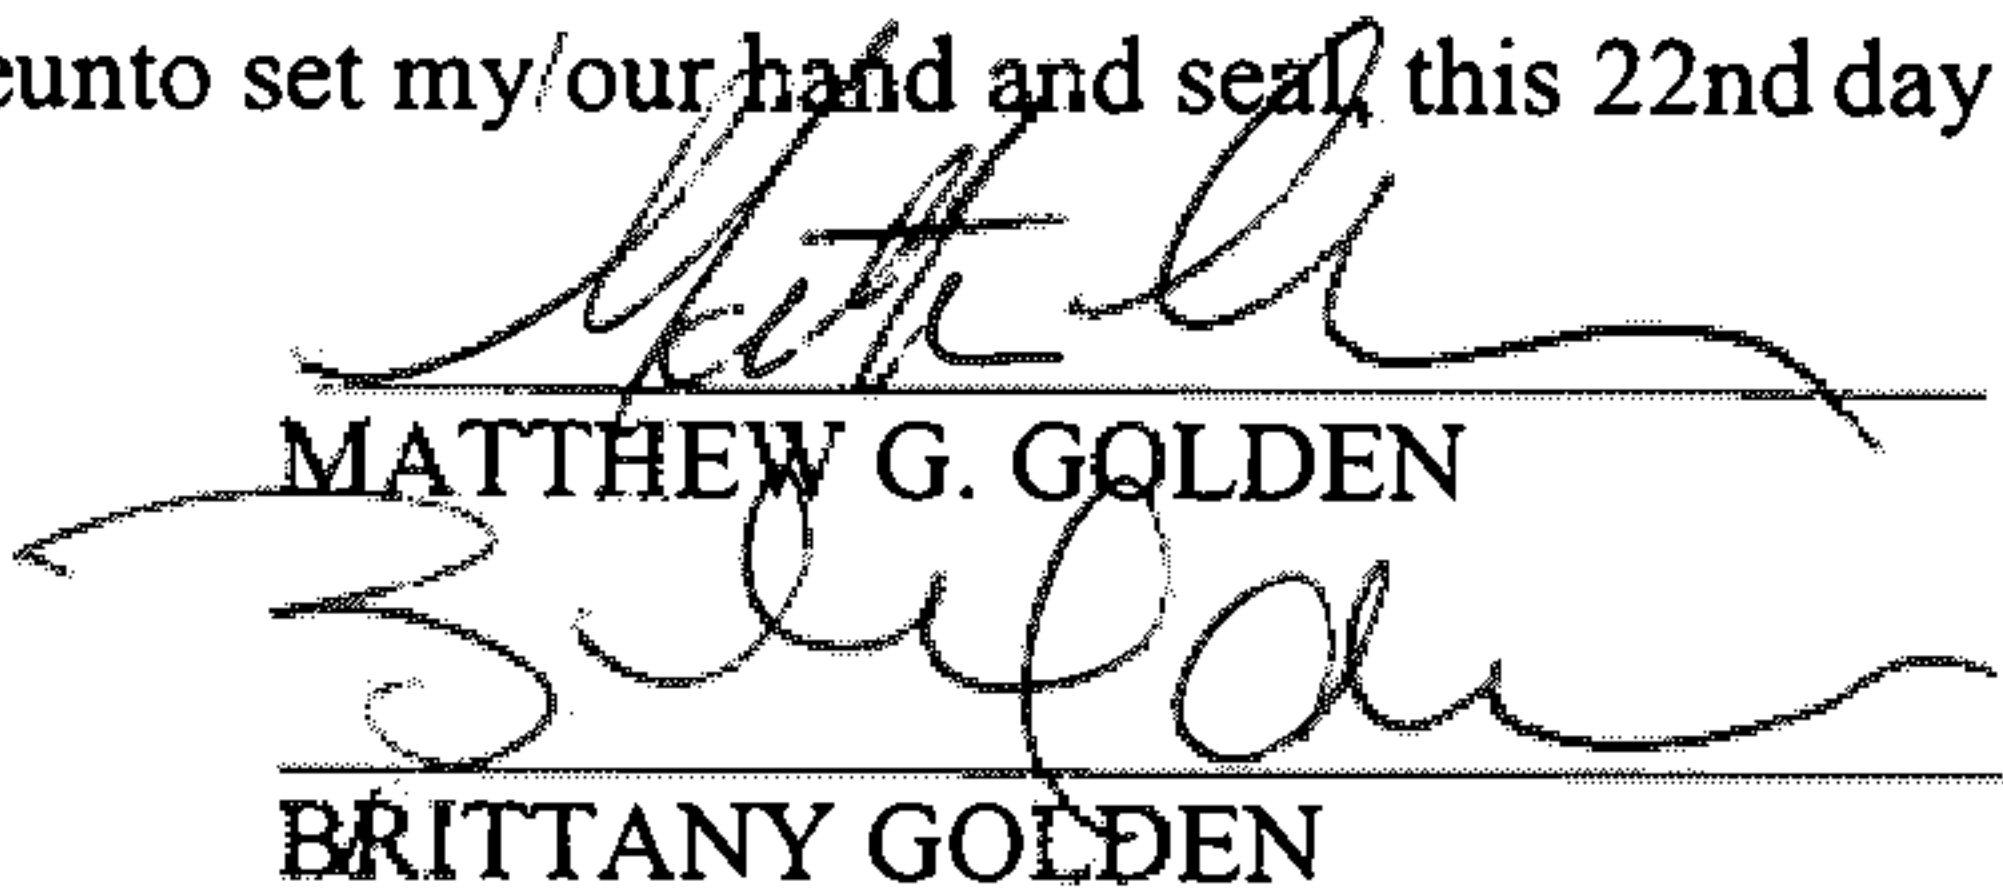 eunto set my/our hand and seal, this 22nd day
MATTHEW G. GOLDEN
BRITTANY GOLDEN